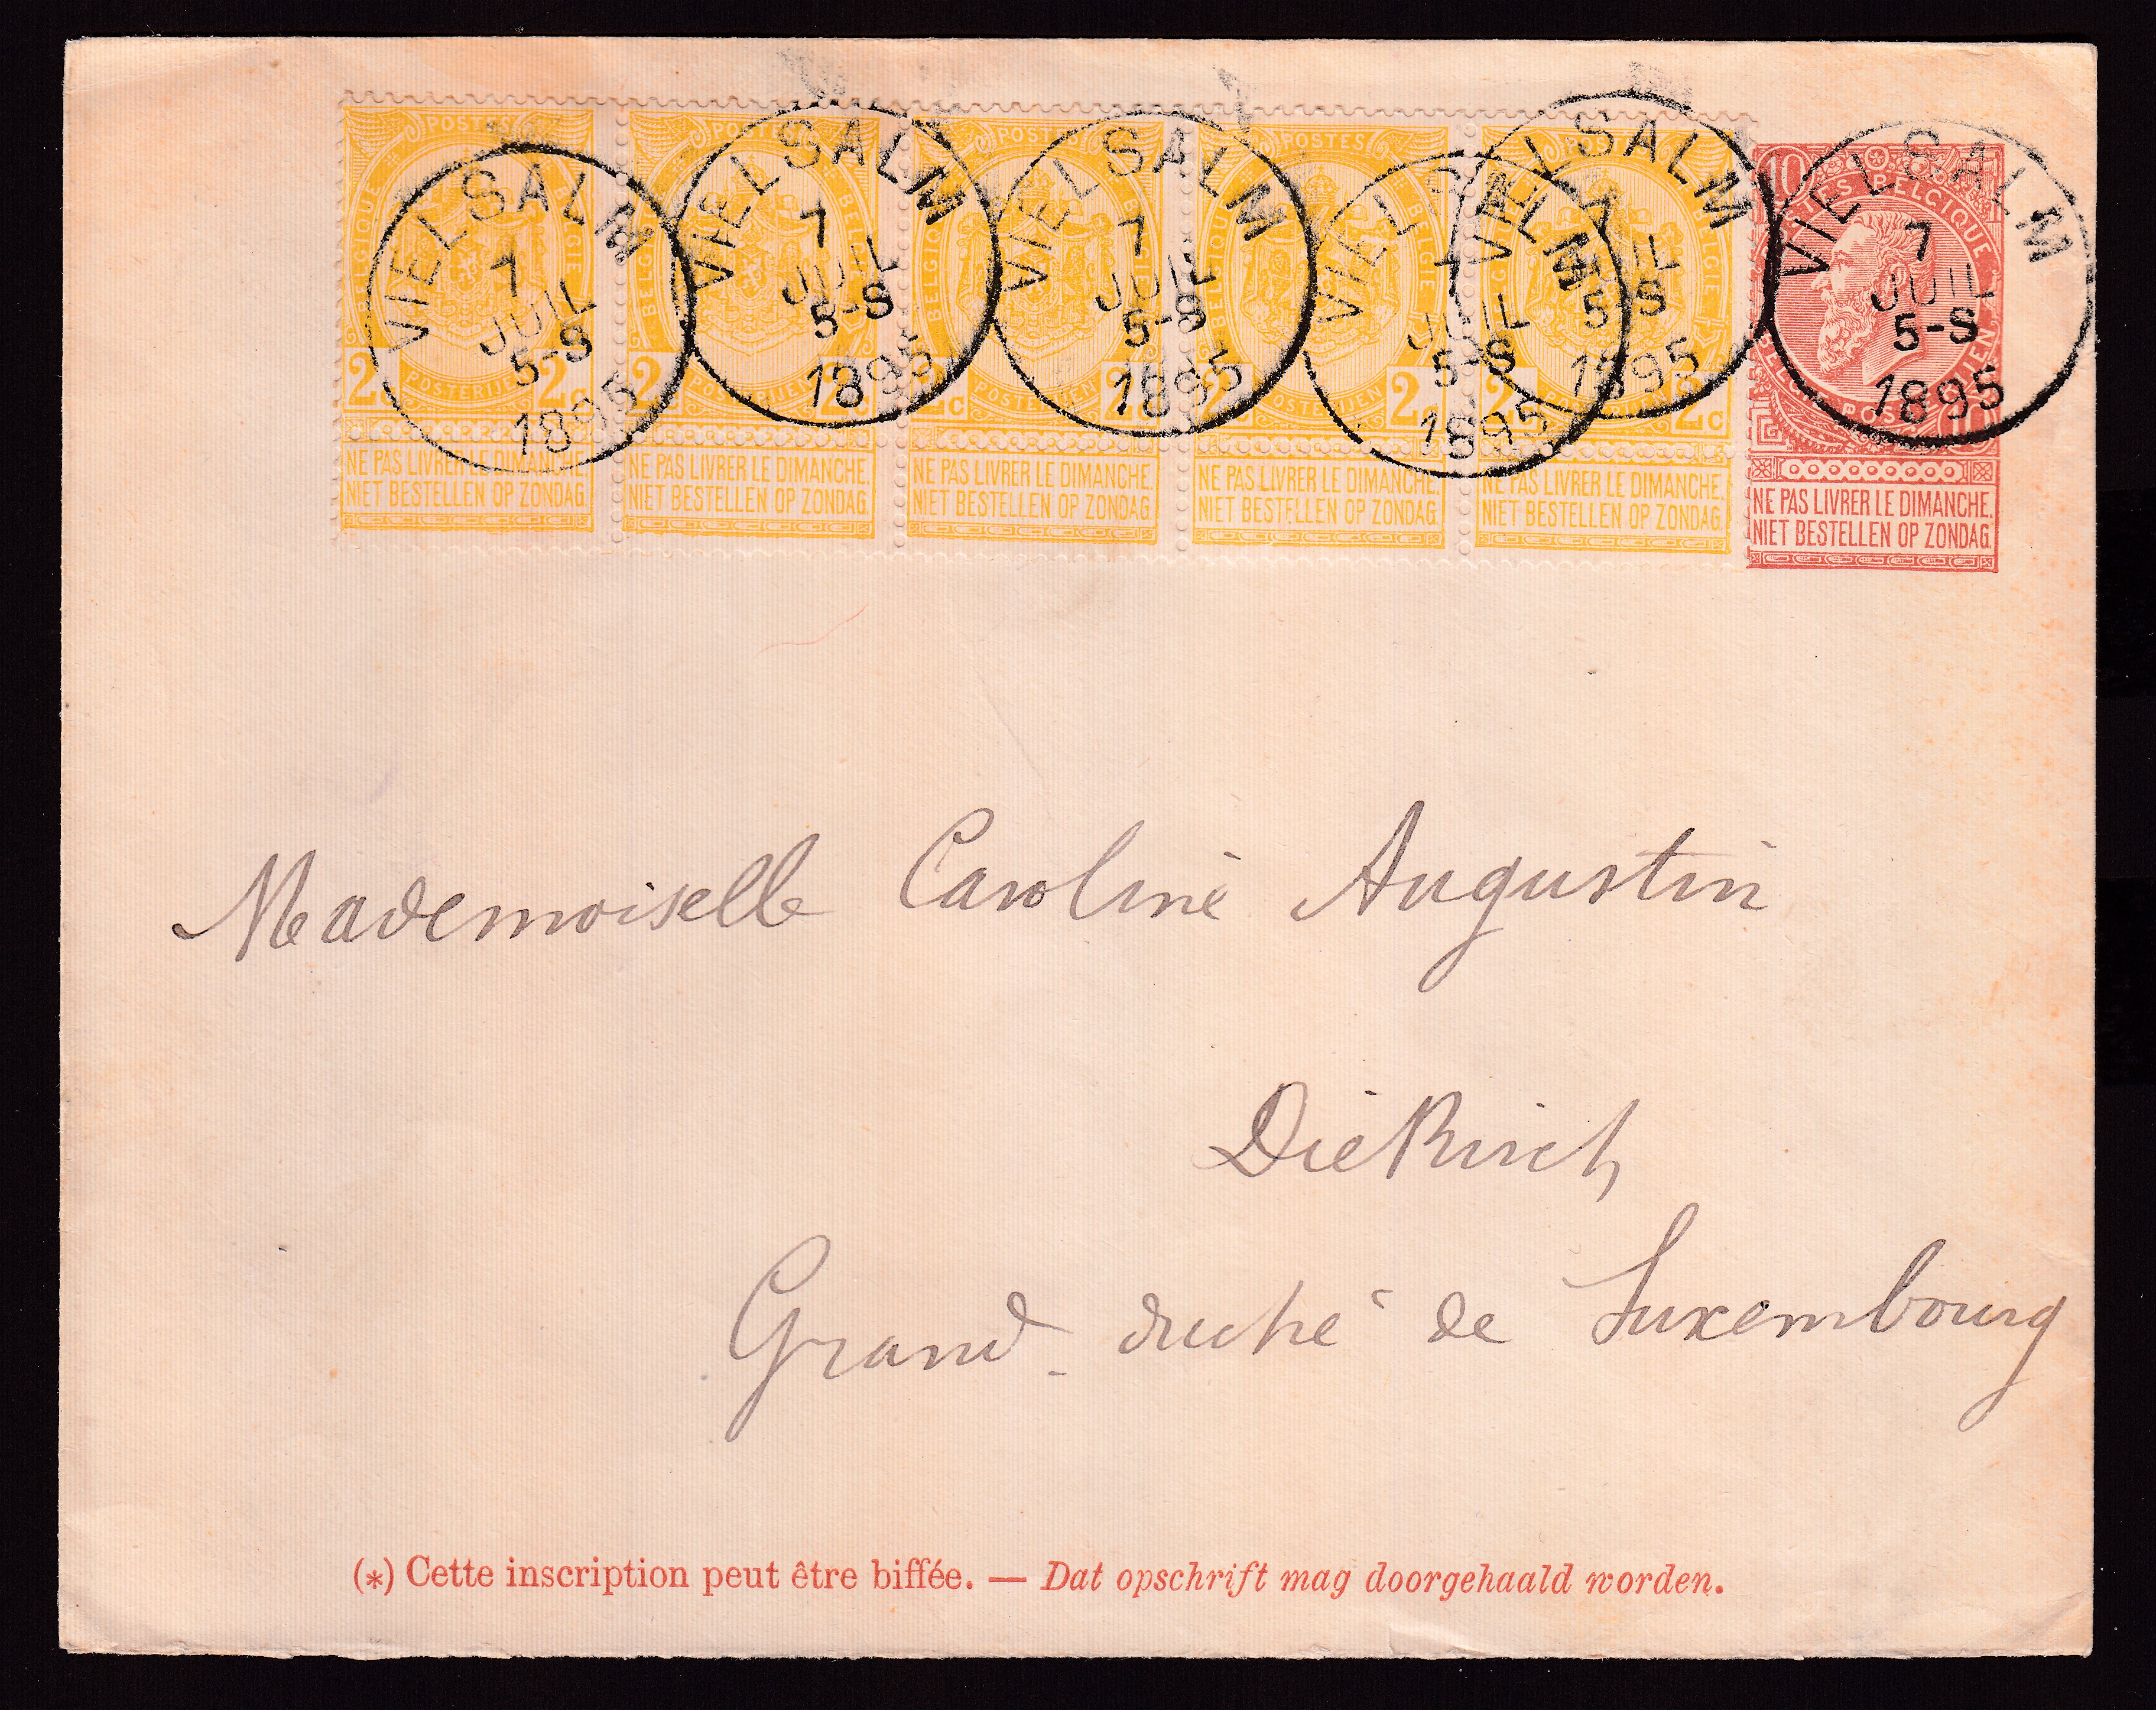 POSTES
BELGIQUE BELGIE
2c POSTERIJEN 2c
NE PAS LIVRER LE DIMANCHE.
NIET BESTELLEN OP ZONDAG.
VIELSALM
7
JUIL
5-S
1895
POSTES
BELGIQUE BELGIE
2c POSTERIJEN 2c
NE PAS LIVRER LE DIMANCHE.
NIET BESTELLEN OP ZONDAG.
VIELSALM
7
JUIL
5-S
1895
POSTES
BELGIQUE BELGIE
2c POSTERIJEN 2c
NE PAS LIVRER LE DIMANCHE.
NIET BESTELLEN OP ZONDAG.
VIELSALM
7
JUIL
5-S
1895
POSTES
BELGIQUE BELGIE
2c POSTERIJEN 2c
NE PAS LIVRER LE DIMANCHE.
NIET BESTELLEN OP ZONDAG.
VIELSALM
7
JUIL
5-S
1895
BELGIE
2c
NE PAS LIVRER LE DIMANCHE.
NIET BESTELLEN OP ZONDAG.
VIELSALM
7
JUIL
5-S
1895
10
BELGIQUE
NE PAS LIVRER LE DIMANCHE.
NIET BESTELLEN OP ZONDAG.
VIELSALM
7
JUIL
5-S
1895
Mademoiselle Caroline Augustin
Diekirch
Grand-duché de Luxembourg
(*) Cette inscription peut être biffée. — Dat opschrift mag doorgehaald worden.